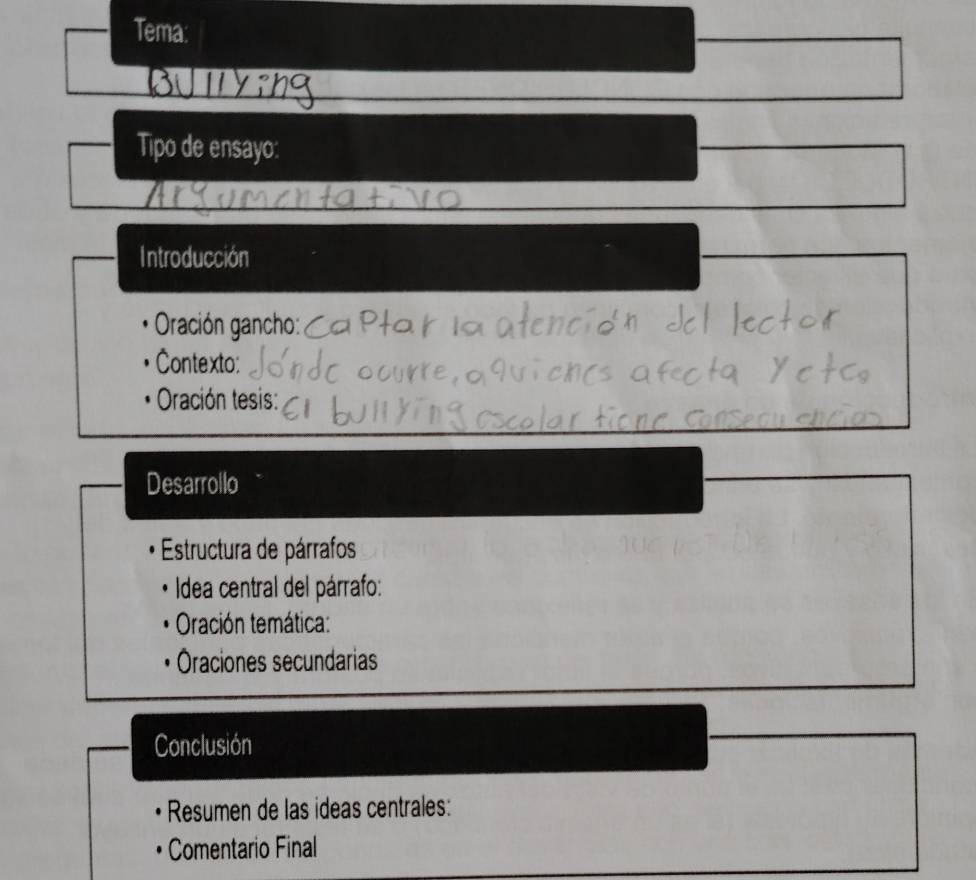 Tema:
Bullying
Tipo de ensayo:
Argumentativo
Introducción
• Oración gancho: Captar la atención del lector
• Contexto: dónde ocurre, a quienes afecta y etc.
• Oración tesis: El bullying escolar tiene consecuencias
Desarrollo
• Estructura de párrafos
• Idea central del párrafo:
• Oración temática:
• Oraciones secundarias
Conclusión
• Resumen de las ideas centrales:
• Comentario Final